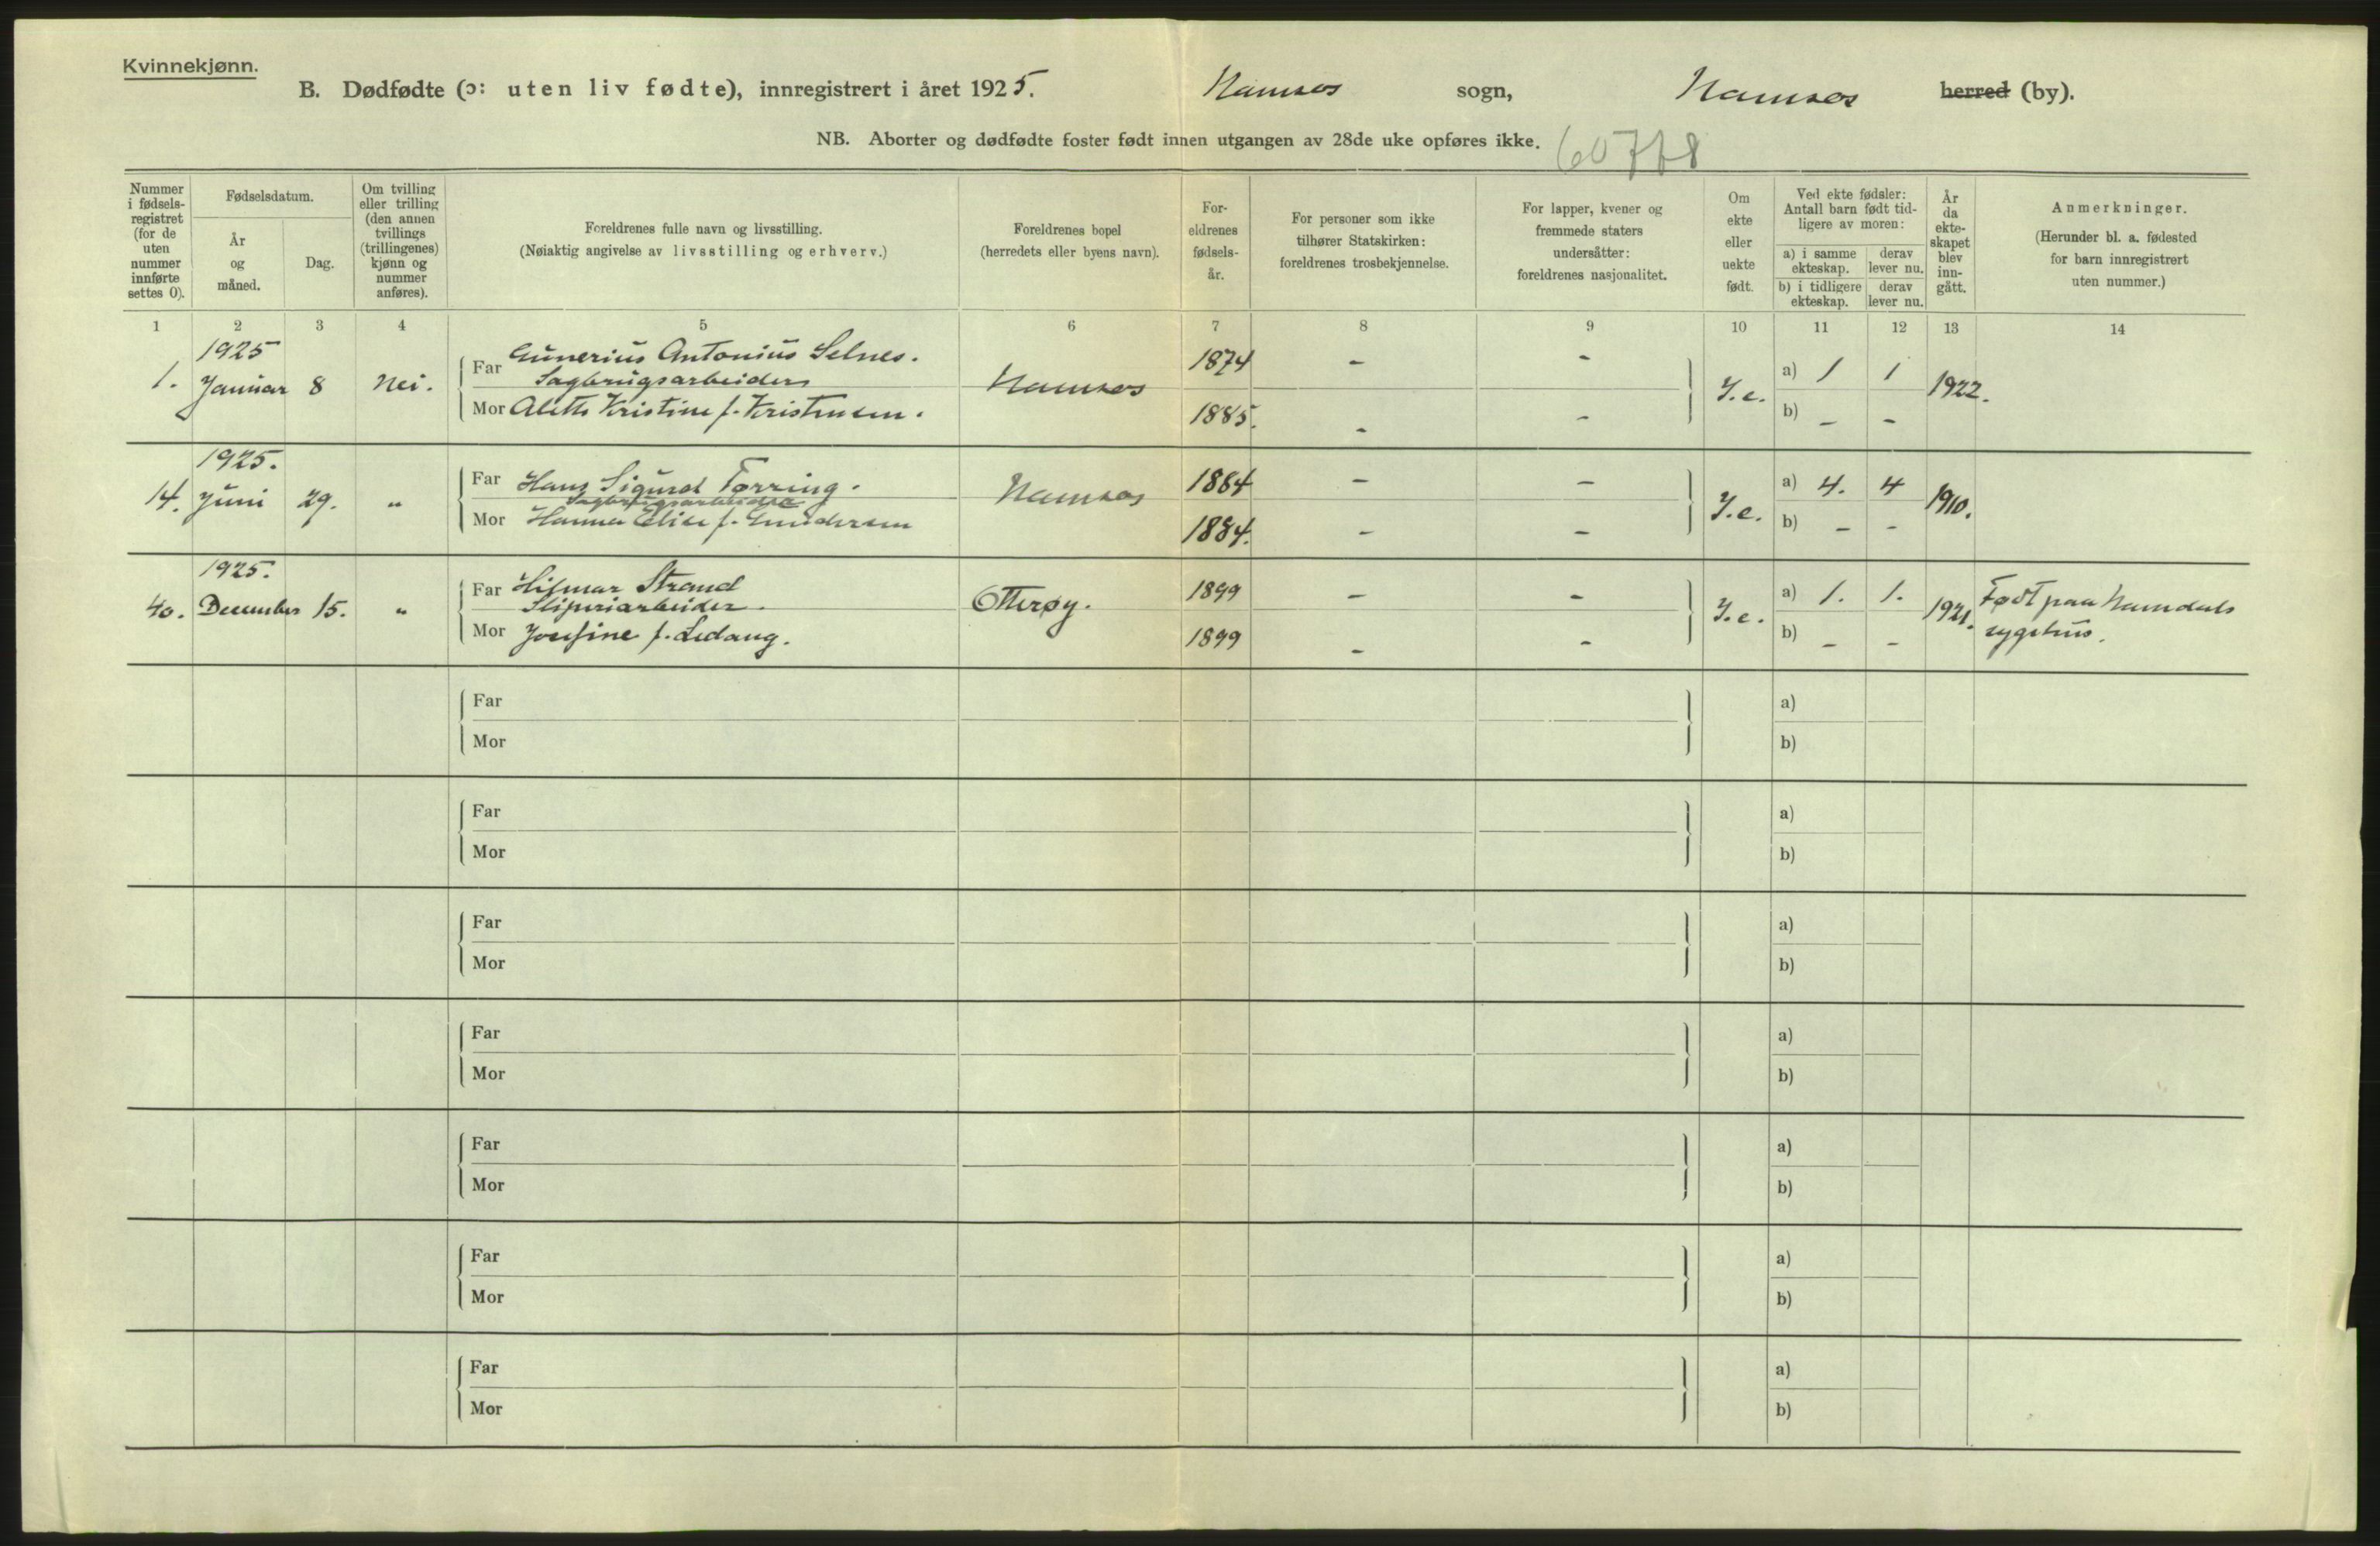 Kvinnekjønn.
B. Dødfødte (ɔ: uten liv fødte), innregistrert i året 1925. Namsos sogn, Namsos herred (by).
NB. Aborter og dødfødte foster født innen utgangen av 28de uke opføres ikke.
Nummer i fødselsregistret (for de uten nummer innførte settes 0).
Fødselsdatum.
År og måned.
Dag.
Om tvilling eller trilling (den annen tvillings (trillingenes) kjønn og nummer anføres).
Foreldrenes fulle navn og livsstilling.
(Nøiaktig angivelse av livsstilling og erhverv.)
Foreldrenes bopel
(herredets eller byens navn).
Foreldrenes fødselsår.
For personer som ikke tilhører Statskirken: foreldrenes trosbekjennelse.
For lapper, kvener og fremmede staters undersåtter: foreldrenes nasjonalitet.
Om ekte eller uekte født.
Ved ekte fødsler: Antall barn født tidligere av moren:
a) i samme ekteskap. derav lever nu.
b) i tidligere ekteskap. derav lever nu.
År da ekteskapet blev inngått.
Anmerkninger.
(Herunder bl. a. fødested for barn innregistrert uten nummer.)
1 2 3 4 5 6 7 8 9 10 11 12 13 14
1925
1. Januar 8 Nei. Far Gunerius Antonius Selnes. Namsos 1874 - - Y.e. a) 1 1 1922.
Sagbrugsarbeider
Mor Alette Kristine f. Kristensen. 1885. - - b) - -
1925.
14. Juni 29. " Far Hans Sigurd Tørring. Namsos 1884 - - Y.e. a) 4. 4 1910.
Sagbrugsarbeider
Mor Hanna Elise f. Gundersen 1884. - - b) - -
1925.
40. December 15. " Far Hilmar Strand Otterøy. 1899 - - Y.e. a) 1. 1. 1921. Født paa Namdals
Sliperiarbeider. sygehus.
Mor Josefine f. Ledang. 1899 - - b) - -
Far a)
Mor b)
Far a)
Mor b)
Far a)
Mor b)
Far a)
Mor b)
Far a)
Mor b)
Far a)
Mor b)
Far a)
Mor b)